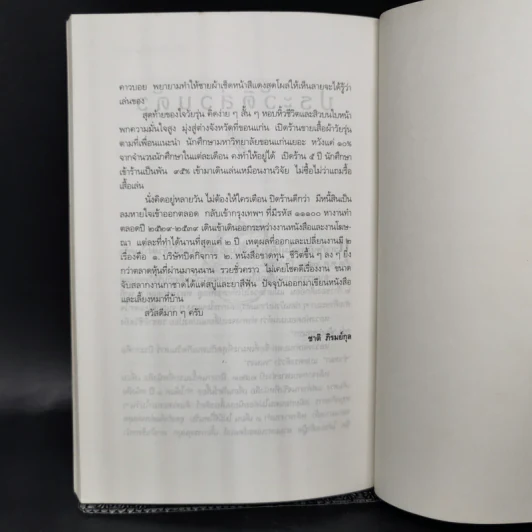 คาวบอย พยายามทำให้ชายผ้าเช็ดหน้าสีแดงสุดโผล่ให้เห็นลายจะได้รู้ว่า
เล่นของ
สุดท้ายของใจวัยรุ่น คิดง่าย ๆ สั้น ๆ หอบหิ้วชีวิตและสิวบนใบหน้า
พกความมั่นใจสูง มุ่งสู่ต่างจังหวัดที่ขอนแก่น เปิดร้านขายเสื้อผ้าวัยรุ่น
ตามที่เพื่อนแนะนำ นักศึกษามหาวิทยาลัยขอนแก่นเยอะ หวังแค่ ๒๐%
จากจำนวนนักศึกษาในแต่ละเดือน คงทำให้อยู่ได้ เปิดร้าน ๕ ปี นักศึกษา
เข้าร้านเป็นพัน ๙๕% เข้ามาเดินเล่นเหมือนงานวิจัย ไม่ซื้อไม่ว่าแถมรื้อ
เสื้อเล่น
นั่งคิดอยู่หลายวัน ไม่ต้องให้ใครเตือน ปิดร้านดีกว่า มีหนี้สินเป็น
ลมหายใจเข้าออกตลอด กลับเข้ากรุงเทพฯ ที่มีรหัส ๑๑๑๐๐ หางานทำ
ตลอดปี ๒๕๓๑-๒๕๓๙ เดินเข้าเดินออกระหว่างงานหนังสือและงานโฆษ-
ณา แต่ละที่ทำได้นานที่สุดแค่ ๒ ปี เหตุผลที่ออกและเปลี่ยนงานมี ๒
เรื่องคือ ๑. บริษัทปิดกิจการ ๒. หนังสือขาดทุน ชีวิตขึ้น ๆ ลง ๆ ยิ่ง
กว่าตลาดหุ้นที่ผ่านมาจนนาน รวยชั่วคราว ไม่เคยโชคดีเรื่องงาน ขนาด
จับสลากงานกาชาดได้แค่สบู่และยาสีฟัน ปัจจุบันออกมาเขียนหนังสือ
และเลี้ยงหมาที่บ้าน
สวัสดีมาก ๆ ครับ
ชาติ ภิรมย์กุล